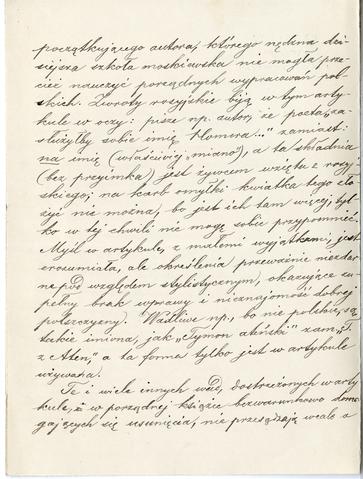 początkującego autora, którego nędzna dzi-
siejsza szkoła moskiewska nie mogła prze-
cież nauczyć porządnych wypracowań pol-
skich. Zwroty rosyjskie biją w tym arty-
kule w oczy: pisze np. autor, że poeta „za-
służyłby sobie imię Homera..." zamiast:
na imię (właściwiej „miano), a ta składnia
(bez przyimka) jest żywcem wzięta z rosyj-
skiego; na karb omyłki kwiatka tego zło-
żyć nie można, bo jest ich tam więcej, tyl-
ko w tej chwili nie mogę sobie przypomnieć.
Myśl w artykule, z małemi wyjątkami, jest
zrozumiała, ale określenia przeważnie niezdar-
ne pod względem stylistycznym, okazujące zu-
pełny brak wprawy i nieznajomość dobrej
polszczyzny. Wadliwe np., bo nie polskie, są
takie imiona, jak „Tymon ateński" zam. „T.
z Aten," a ta forma tylko jest w artykule
używana.
Te i wiele innych wad, dostrzeżonych w arty-
kule, a w porządnej książce bezwarunkowo doma-
gających się usunięcia, nie przesądzają wcale o